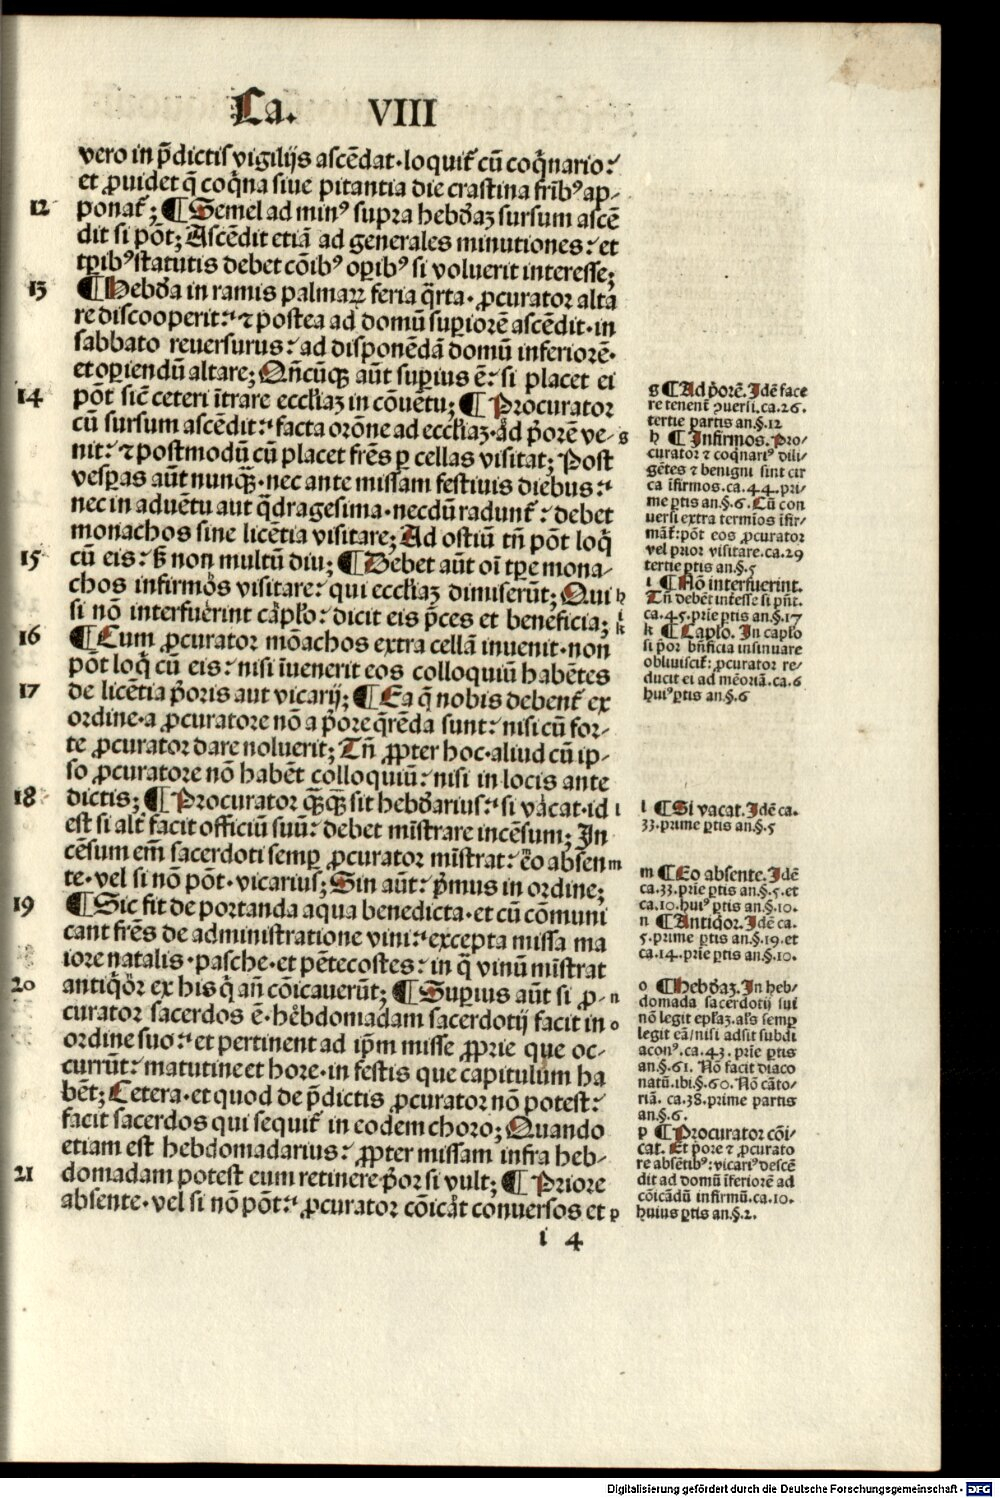 Ca. VIII
vero in p̄dictis vigilijs ascēdat·loquit᷑ cū coq̄nario:
et ꝓuidet q̄ coq̄na siue pitantia die crastina frīb⁹ ap-
12 ponat᷑; ¶ Semel ad min⁹ supra hebd̄aꝫ sursum ascē
dit si pōt; Ascēdit etiā ad generales minutiones: et
tp̄ib⁹ statutis debet cōib⁹ oꝑib⁹ si voluerit interesse;
13 ¶ Hebd̄a in ramis palmaꝝ feria q̄rta· ꝓcurator alta
re discooperit: ⁊ postea ad domū suꝑiorē ascēdit·in
sabbato reuersurus: ad disponēdā domū inferiorē·
et oꝑiendū altare; Qn̄cūqꝫ aūt suꝑius ē: si placet ei
14 pōt sic̄ ceteri ītrare eccl̄iaꝫ in cōuētu; ¶ Procurator
cū sursum ascēdit: facta orōne ad eccl̄iaꝫ·ad p̄orē ve- g
nit: ⁊ postmodū cū placet frēs ꝑ cellas visitat; Post
vesꝑas aūt nunqꝫ̄·nec ante missam festiuis diebus:
nec in aduētu aut q̄dragesima·necdū radunt᷑: debet
monachos sine licētia visitare; Ad ostiū tn̄ pōt loq̄
15 cū eis: sꝫ non multū diu; ¶ Debet aūt oī tp̄e mona-
chos infirmos visitare: qui eccl̄iaꝫ dimiserūt; Qui h
si nō interfuerint cap̄lo: dicit eis p̄ces et beneficia; i k
16 ¶ Cum ꝓcurator mōachos extra cellā inuenit·non
pōt loq̄ cū eis: nisi īuenerit eos colloquiū habētes
17 de licētia p̄oris aut vicarij; ¶ Ea q̄ nobis debent᷑ ex
ordine·a ꝓcuratore nō a p̄ore q̄rēda sunt: nisi cū for-
te ꝓcurator dare noluerit; Tn̄ ꝓpter hoc·aliud cū ip-
so ꝓcuratore nō habēt colloquiū: nisi in locis ante
18 dictis; ¶ Procurator qꝫ̄qꝫ̄ sit hebd̄arius: si vacat·id l
est si alt᷑ facit officiū suū: debet mīstrare incēsum; In
cēsum em̄ sacerdoti semꝑ ꝓcurator mīstrat: eo absen m
te·vel si nō pōt·vicarius; Sin aūt: p̄mus in ordine;
19 ¶ Sic fit de portanda aqua benedicta·et cū cōmuni
cant frēs de administratione vini: excepta missa ma
iore natalis·pasche·et pētecostes: in q̄ vinū mīstrat
20 antiq̄or ex his q̄ an̄ cōicauerūt; ¶ Suꝑius aūt si ꝓ- n
curator sacerdos ē·hebdomadam sacerdotij facit in o
ordine suo: et pertinent ad ip̄m misse ꝓprie que oc-
currūt: matutine et hore·in festis que capitulum ha
bēt; Cetera·et quod de p̄dictis ꝓcurator nō potest:
facit sacerdos qui sequit᷑ in eodem choro; Quando
etiam est hebdomadarius: ꝓpter missam infra heb-
21 domadam potest eum retinere p̄or si vult; ¶ Priore
absente·vel si nō pōt: ꝓcurator cōicat conuersos et p
i 4
g ¶ Ad p̄orē. Idē face
re tenent᷑ ꝯuersi.ca.26.
tertie partis an.§.12
h ¶ Infirmos. Pro-
curator ⁊ coq̄nari⁹ dili-
gētes ⁊ benigni sint cir
ca īfirmos.ca.44.pri-
me ꝑtis an.§.6. Cū con
uersi extra termīos īfir-
māt᷑: pōt eos ꝓcurator
vel prior visitare.ca.29
tertie ꝑtis an.§.5
i ¶ Nō interfuerint.
Tn̄ debēt int̄esse si pn̄t.
ca.45.prīe ꝑtis an.§.17
k ¶ Cap̄lo. In cap̄lo
si p̄or bn̄ficia insinuare
obliuiscit᷑: ꝓcurator re-
ducit ei ad mēoriā.ca.6
hui⁹ ꝑtis an.§.6
l ¶ Si vacat. Idē ca.
33.prime ꝑtis an.§.5
m ¶ Eo absente. Idē
ca.33.prīe ꝑtis an.§.5.et
ca.10.hui⁹ ꝑtis an.§.10.
n ¶ Antiq̄or. Idē ca.
5.prime ꝑtis an.§.19.et
ca.14.prīe ꝑtis an.§.10.
o ¶ Hebd̄aꝫ. In heb-
domada sacerdotij sui
nō legit ep̄laꝫ.al̄s semꝑ
legit eā/nisi adsit subdi
acon⁹.ca.43. prīe ꝑtis
an.§.61. Nō facit diaco
natū.ibi.§.60. Nō cāto-
riā. ca.38.prime partis
an.§.6.
p ¶ Procurator cōi-
cat. Et p̄ore ⁊ ꝓcurato
re absētib⁹: vicari⁹ descē
dit ad domū īferiorē ad
cōicādū infirmū.ca.10.
huius ꝑtis an.§.2.
Digitalisierung gefördert durch die Deutsche Forschungsgemeinschaft - DFG